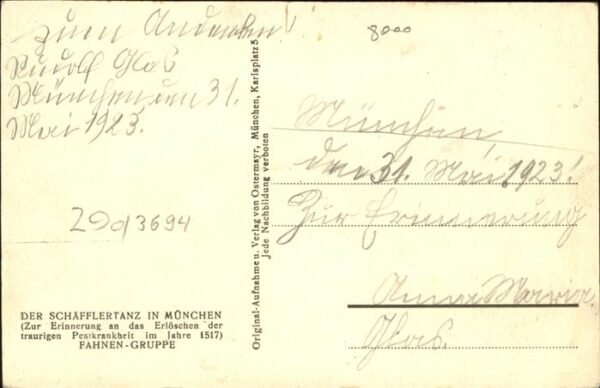 Zum Andenken!
Rudolf Glas
München den 31.
Mai 1923.
8000
29d3694
DER SCHÄFFLERTANZ IN MÜNCHEN
(Zur Erinnerung an das Erlöschen der
traurigen Pestkrankheit im Jahre 1517)
FAHNEN-GRUPPE
Original-Aufnahme u. Verlag von Ostermayr, München, Karlsplatz 5
Jede Nachbildung verboten
München,
den 31. Mai 1923!
Zur Erinnerung
Anna Maria
Glas.